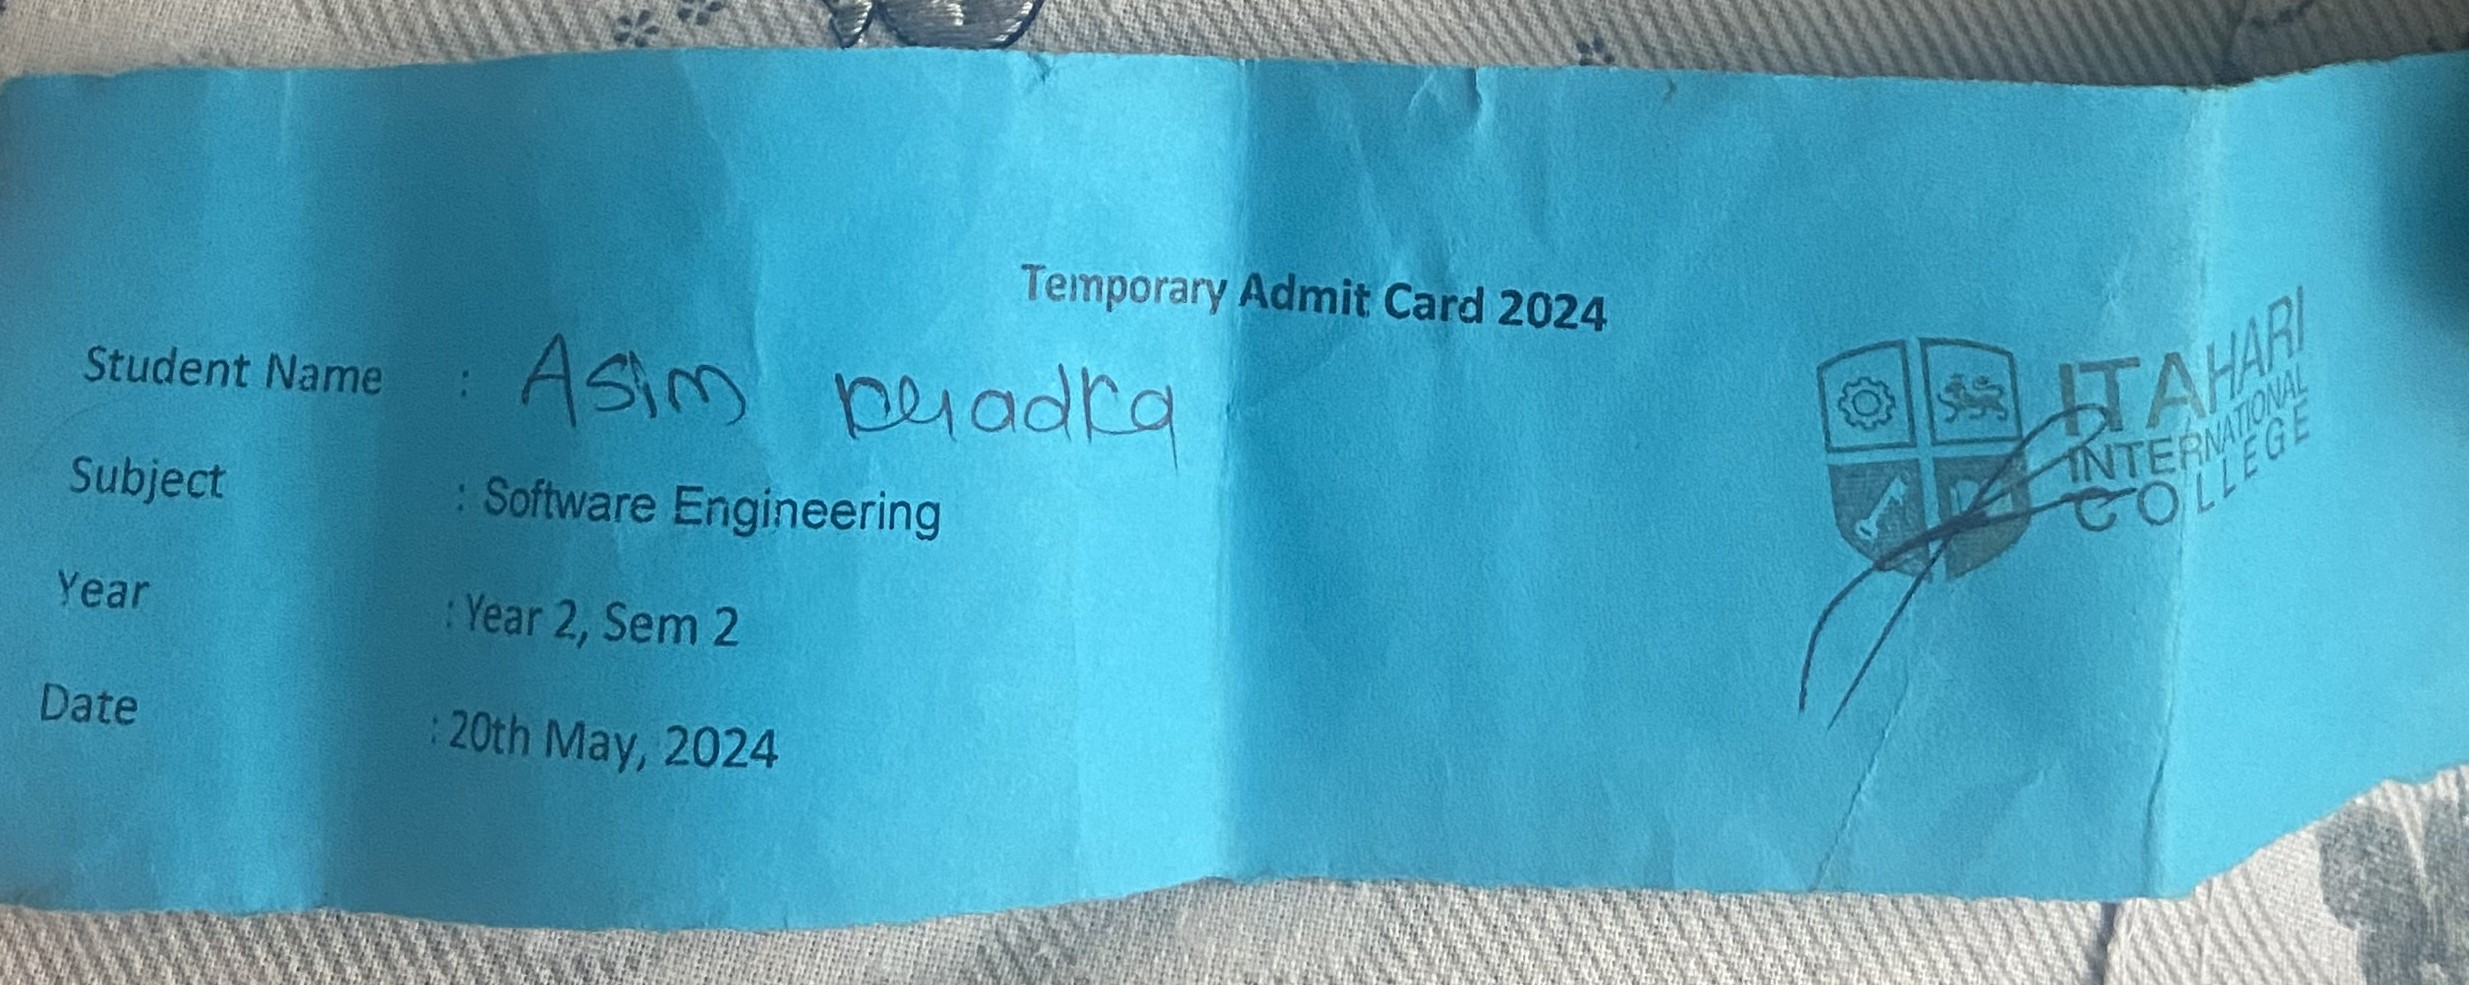 Temporary Admit Card 2024
Student Name : Asim
Subject : Software Engineering
Year : Year 2, Sem 2
Date : 20th May, 2024
ITAHARI
INTERNATIONAL
COLLEGE